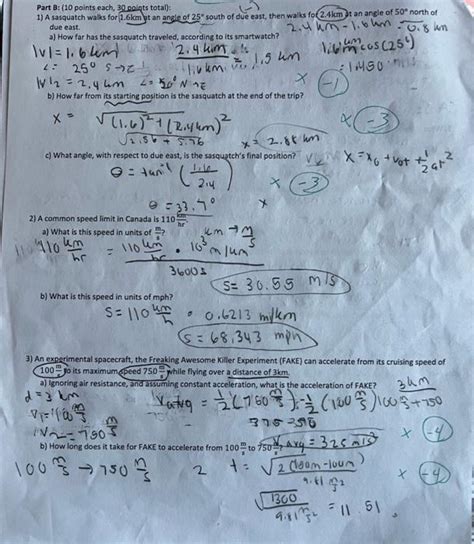 Part B: (10 points each, 30 points total):
1) A sasquatch walks for 1.6km at an angle of 25° south of due east, then walks for 2.4km at an angle of 50° north of
due east.
2.4 km - 1.6 km 0.8 km
a) How far has the sasquatch traveled, according to its smartwatch?
|v| = 1.6 km
2.4 km
1.6 km
= 1.5 km
1.6 km cos(25°)
= 1.450
∠ = 25° S → E
x -1
|v|2 = 2.4 km ∠ = 50° N → E
b) How far from its starting position is the sasquatch at the end of the trip?
x = √(1.6)² + (2.4km)²
√2.56 + 5.76
x = 2.88 km
x -3
c) What angle, with respect to due east, is the sasquatch's final position?
x = x0 + v0t + 1/2 at²
θ = tan⁻¹ (1.6/2.4)
x -3
θ = 33.7°
x
2) A common speed limit in Canada is 110 km/hr
a) What is this speed in units of m/s?
km → m/s
110 km/hr = 110 km/hr · 10³ m/km
3600s
s = 30.55 m/s
b) What is this speed in units of mph?
s = 110 km/h · 0.6213 m/km
s = 68.343 mph
3) An experimental spacecraft, the Freaking Awesome Killer Experiment (FAKE) can accelerate from its cruising speed of
100 m/s to its maximum speed 750 m/s while flying over a distance of 3km.
a) Ignoring air resistance, and assuming constant acceleration, what is the acceleration of FAKE?
3km
d = 3 km
100 + 750
v1 = 100 m/s
375 - 50
v2 = 750 m/s
Vavg = 325 m/s²
x -4
b) How long does it take for FAKE to accelerate from 100 m/s to 750 m/s?
100 m/s → 750 m/s
2
t =
9.81 m/s²
x -4
√1300
9.81 m/s² = 11.51